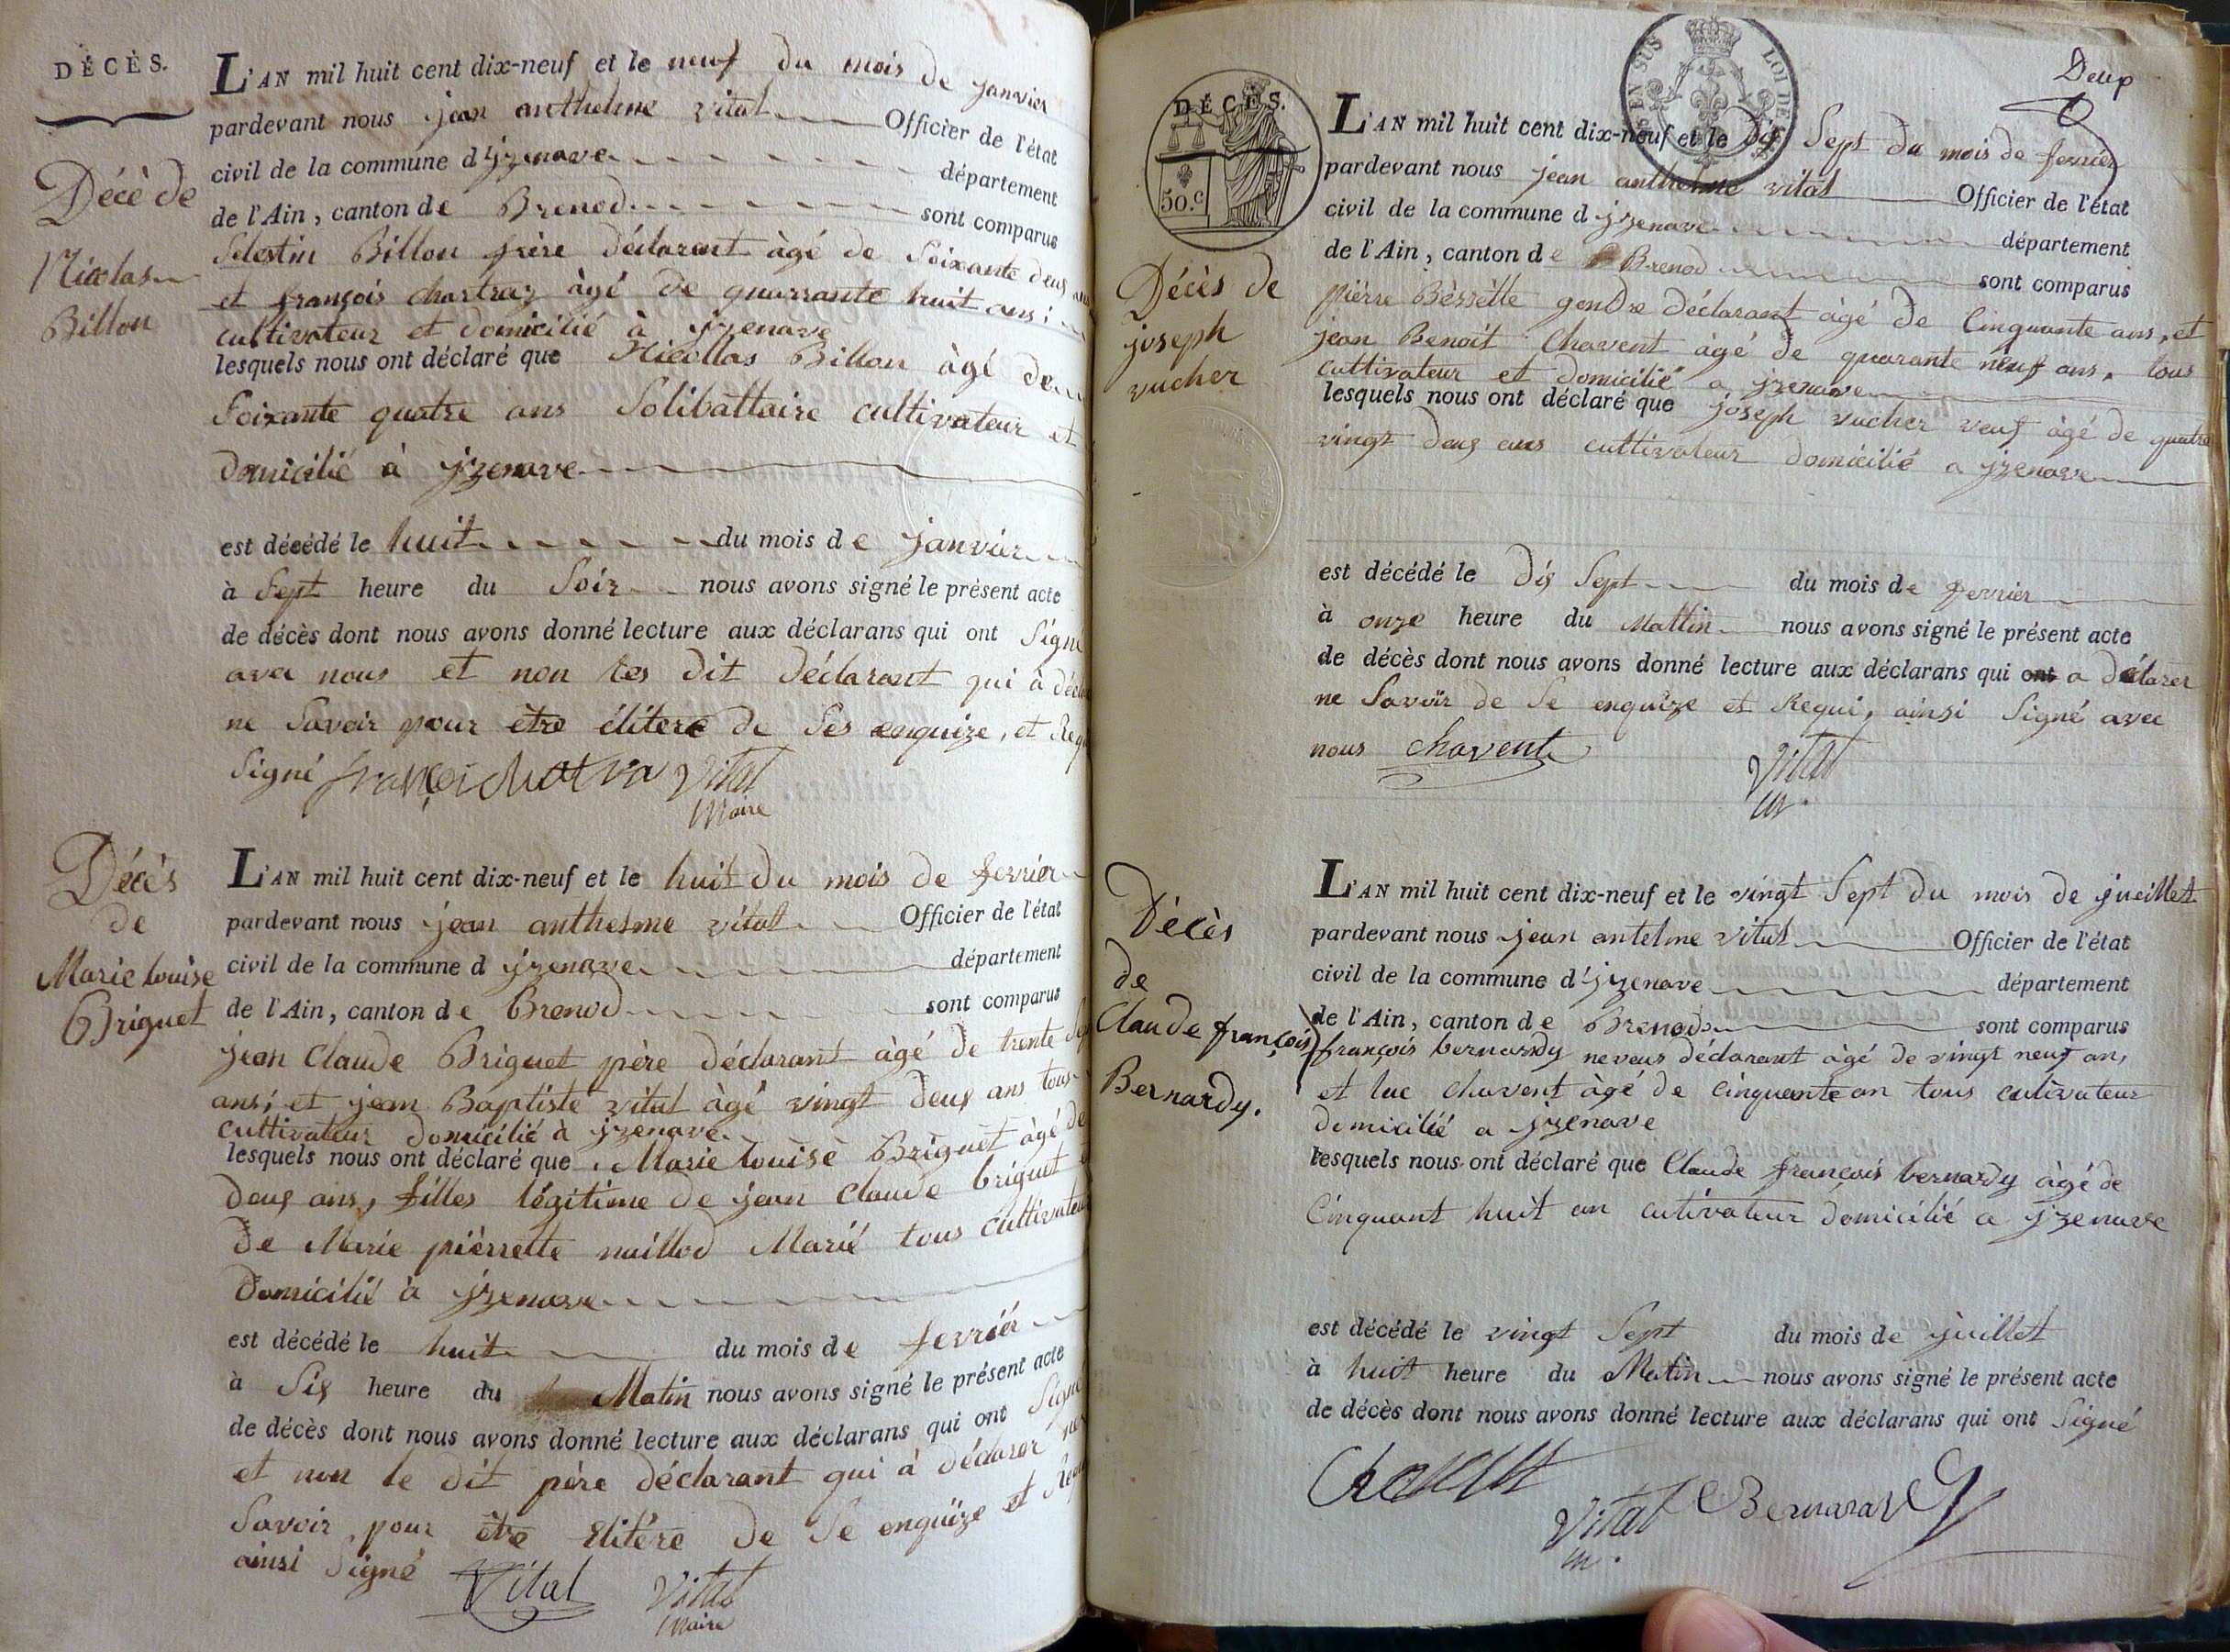 DÉCÈS.
L'AN mil huit cent dix-neuf et le neuf du mois de janvier
pardevant nous jean anthelme vital Officier de l'état
civil de la commune d'jzenave département
de l'Ain, canton de Brenod sont comparus
Décè de
Nicolas
Billon
Selestin Billon frère déclarant àgé de Soixante deux ans
et françois chartraz àgé de quarrante huit ans;
cultivateur et domicilié à jzenave
lesquels nous ont déclaré que Nicollas Billon àgé de
Soixante quatre ans Solibattaire cultivateur et
domicilié à jzenave
est décédé le huit du mois de janvier
à Sept heure du Soir nous avons signé le présent acte
de décès dont nous avons donné lecture aux déclarans qui ont Signé
avec nous et non les dit déclarant qui à
ne Savoir pour être élitere de Ses enquize, et
Signé Vital
Maire
Décès
de
Marie louise
Briguet
L'AN mil huit cent dix-neuf et le huit du mois de fevrier
pardevant nous jean anthelme vital Officier de l'état
civil de la commune d jzenave département
de l'Ain, canton de Brenod sont comparus
jean Claude Briguet père déclarant àgé de trente
ans; et jean Baptiste vital àgé vingt deux ans tous
cultivateur domicilié à jzenave.
lesquels nous ont déclaré que Marie louise Briguet àgé de
deux ans, filles légitime de jean Claude briguet
de Marie pièrrette maillod Marié tous cultivateur
domicilié à jzenave
est décédé le huit du mois de fevriér
à Six heure du Matin nous avons signé le présent acte
de décès dont nous avons donné lecture aux déclarans qui ont Signé
et non le dit père déclarant qui à déclarer
Savoir, pour être élitère de Se enquize et
ainsi Signé Vital Vital
Maire
Deux
EN SUS LOI DE
DÉCÈS.
50.c
L'AN mil huit cent dix-neuf et le dix Sept du mois de fevrier
pardevant nous jean anthelme vital Officier de l'état
civil de la commune d jzenave département
de l'Ain, canton de Brenod sont comparus
Décès de
joseph
vucher
pièrre Bèssètte gendre déclarant àgé de Cinquante ans, et
jean Benoit Chavent àgé de quarante neuf ans, tous
cultivateur et domicilié a jzenave
lesquels nous ont déclaré que joseph vucher veuf àgé de quatre
vingt deux ans cultivateur domicilié a jzenave
est décédé le dix Sept du mois de fevrier
à onze heure du Mattin nous avons signé le présent acte
de décès dont nous avons donné lecture aux déclarans qui ont a déclarer
ne Savoir de Se enquize et Requi, ainsi Signé avec
nous chavent Vital
m.
Décès
de
Claude françois
Bernardy.
L'AN mil huit cent dix-neuf et le vingt Sept du mois de jueillet
pardevant nous jean antelme vital Officier de l'état
civil de la commune d'jzenave département
de l'Ain, canton de Brenod sont comparus
françois bernardy neveus déclarant àgé de vingt neuf an,
et luc chavent àgé de cinquante an tous cutivateur
domicilié a jzenave
lesquels nous ont déclaré que Claude françois bernardy àgé de
Cinquant huit an cutivateur domicilié a jzenave
est décédé le vingt Sept du mois de juillet
à huit heure du Matin nous avons signé le présent acte
de décès dont nous avons donné lecture aux déclarans qui ont Signé
Vital Bernardy
m.